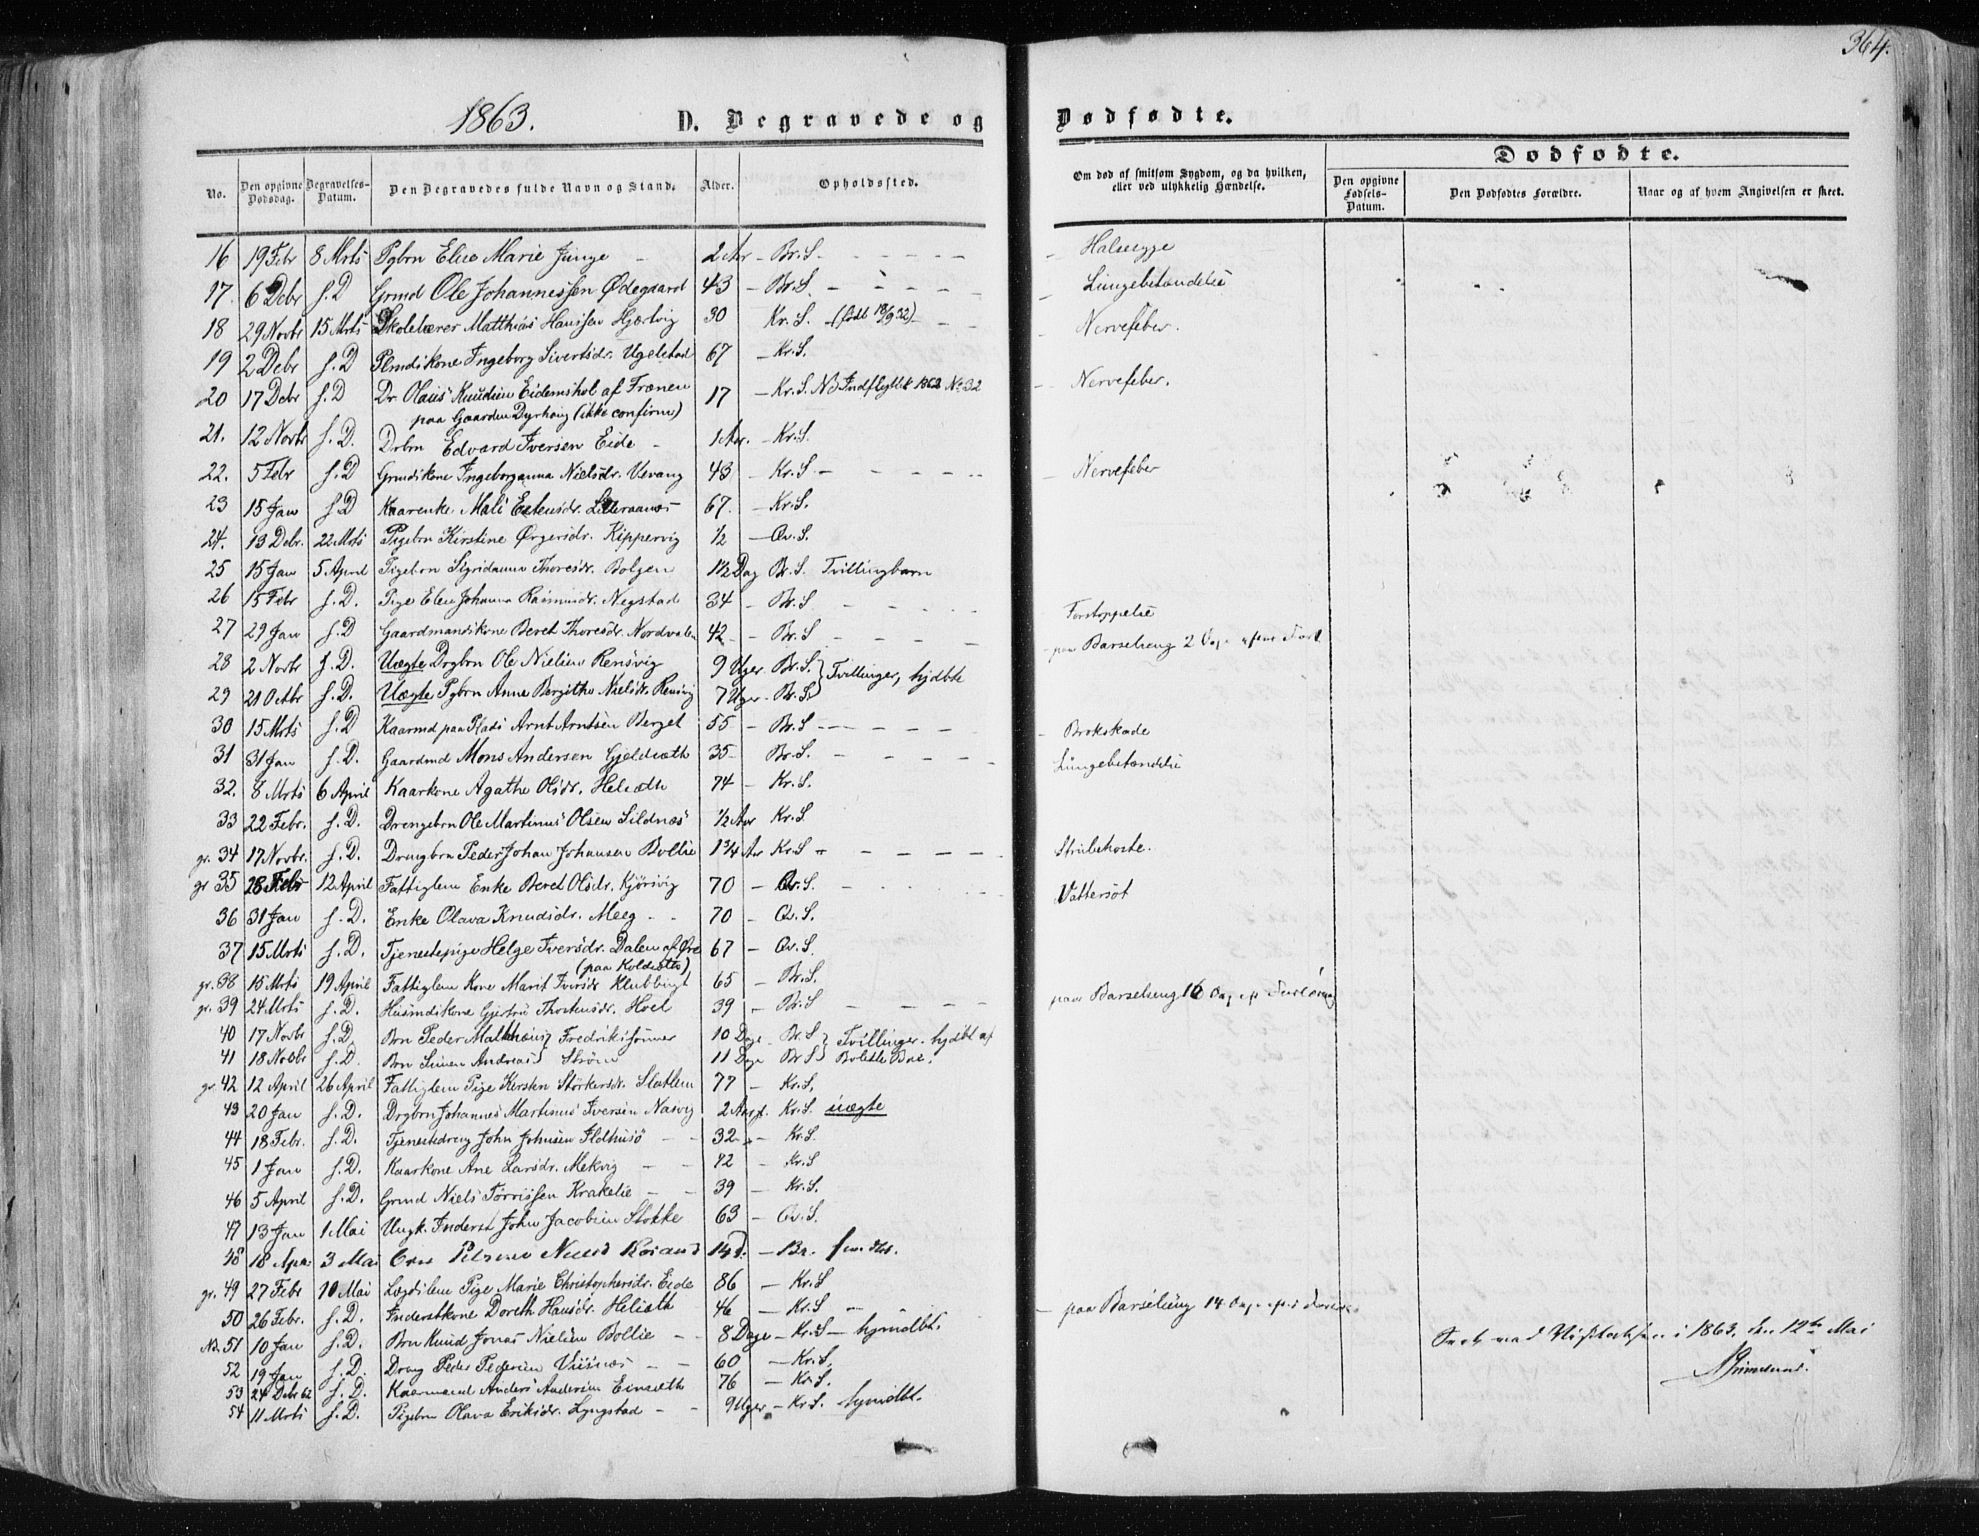 364.
1863.
D. Begravede og Dødfødte.
Dødfødte.
No.
Den opgivne Dødsdag.
Begravelses-Datum.
Den Begravedes fulde Navn og Stand.
Alder.
Opholdssted.
Om død af smitsom Sygdom, og da hvilken, eller ved ulykkelig Hændelse.
Den opgivne Fødsels-Datum.
Den Dødfødtes Forældre.
Naar og af hvem Angivelsen er skeet.
16 19 Febr 8 Mrts Pgbrn Marie Junge 2 Aar - Br. S. - Halssyge
17. 6 Debr s. D Grmd Ole Johannessen Ødegaard 43 - Br. S. - Lungebetændelse
18 29 Novbr 15 Mrts Skolelærer Matthias Hansen 30 Kr. S. (født 18/9 32) - Nervefeber.
19 2 Debr s. D Ingeborg Sivertsdr. Ugelstad 67 - Kr. S.
20 17 Debr s. D Dr. Olaus Knudsen Eidemshol af Frænen 17 - Kr. S. Indflyttet 1862 No. 32 - Nervefeber.
paa Gaarden Dyrhaug (ikke confirm)
21. 12 Novbr s. D. Drbrn Edvard Iversen Eide - 1 Aar. - Kr. S.
22. 5 Febr s. D Grmdskone Ingeborganna Nielsdr. Vevang 43 - Kr. S - Nervefeber
23 15 Jan s. D Kaarenke Mali Estensdr. 67. - Kr. S.
24. 13 Debr. 22 Mrts Pigebrn Kirstine Ørgersdr. Kippervig ½ - Qv. S.
25 15 Jan 5 April Pigebrn Sigridanna Thoresdr. Bolgen 1½ Dag Br. S. Tvillingbarn
26 15 Febr s. D. Pige Elen Johanna Rasmusdr. Negstad 34 - Br. S - Forstoppelse
27 29 Jan s. D Gaardmandskone Beret Thoresdr. Nordvalen 42 - Br. S - paa Barselseng 2 Dage efter
28 2 Novbr s. D. Uægte Drgbrn Ole Nielsen Rensvig 9 Uger Br. S. } Tvillinger, hjdbte
29 21 Octbr s. D. Uægte Pgbrn Anne Bergithe Nielsdr. Rensvig 7 Uger - Br. S. }
30 15 Mrts s. D Kaarmd paa Plads Arnt Arntsen Berget 55 - Br. S - Brokskade
31 31 Jan s. D. Gaardmd Mons Andersen Gjeldsæth 35 - Br. S. - Lungebetændelse
32. 8 Mrts 6 April Kaarkone Agathe Olsdr. Helsæth 74 - Kr. S.
33 22 Febr. s. D. Drengebrn Ole Martinus Olsen Sildnæs ½ Aar Kr. S
gr. 34 17 Novbr. s. D. Drengbrn Peder Johan Johansen Bollie 1¾ Aar Kr. S - Strubehoste.
gr 35 28 Febr 12 April Fattiglem Enke Beret Olsdr. Kjørsvig 70 - Qv. S. - Vattersot
36 31 Jan s. D. Enke Olava Knudsdr. Meeg - 70 - Qv. S.
37 15 Mrts s. D. Tjenestepige Helge Iversdr. Dalen af Øre 67 - Qv. S.
(paa Koldsæth)
gr. 38 15 Mrts 19 April Fattiglem Kone Marit Iversdr Klubbugt 65 - Br. S.
gr. 39 24 Mrts s. D. Husmdskone Gjertru Thorstensdr. Hoel 39 - Br. S - paa Barselseng 16 Dage
40 17 Novbr s. D Brn Peder Matthæus } Fredrikssønner 10 Dage - Br. S } Tvillinger. hjdbt af
41 18 Novbr s. D. Brn Simen Andreas } Strøm 11 Dage Br S } Bolette
gr. 42 12 April 26 April Fattiglem Pige Kirsten Størkersdr. Slatlem 77 - Kr. S.
43 20 Jan s. D. Drgbrn Johannes Martinus Iversen Nasvig 2 Kr. S. uægte
44 18 Febr. s. D. Tjenestedreng John Johnsen Ildhusø - 32 - Kr. S.
45 1 Jan s. D. Kaarkone Ane Larsdr. Mekvig - 72 - Kr. S
46 5 April s. D. Grmd Niels Tørrissen Krakelie - 39 - Kr. S.
47 13 Jan 1 Mai Ungk. Inderst John Jacobsen Stokke 63 - Qv. S.
48 18 Apr. 3 Mai 14 D. - Br.
gr. 49 27 Febr 10 Mai Lægdslem Pige Marie Christophersdr. Eide 86 - Kr. S
50 26 Febr. s. D. Inderstkone Doreth Hansdr. Helsæth 46 - Kr. S - paa Barselseng 14 Dage
51 10 Jan s. D. Brn Knud Jonas Nielsen Bollie - 8 Dage - Kr. S - hjemdbt.
52 19 Jan s. D. Dreng Peder Pedersen Visnæs - 60 - Kr. S.
53 24 Debr 62 s. D. Kaarmand Anders Andersen Einsæth 76 - Kr. S.
54 11 Mrts s. D. Pigebrn Olava Eriksdr. Lyngstad - 9 Uger - Kr. S. hjemdbt.
i 1863, den 12te Mai